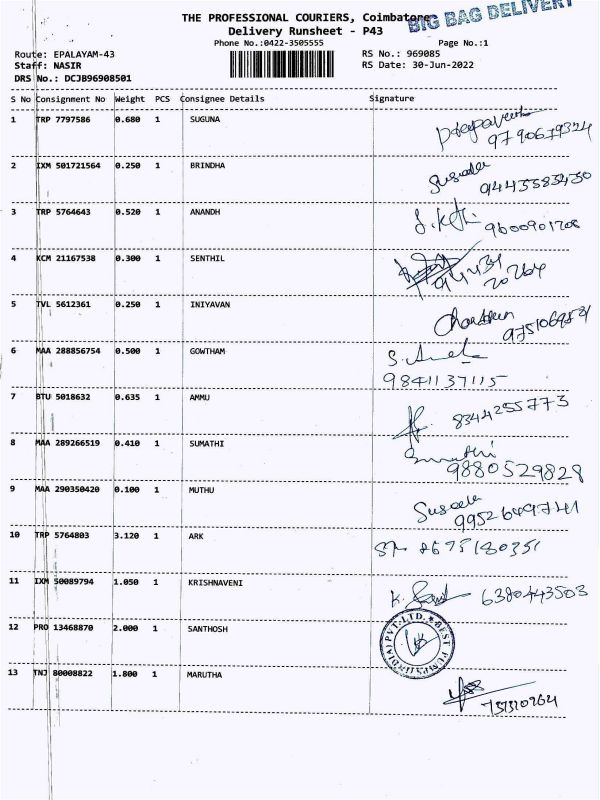 BIG BAG DELIVERY
THE PROFESSIONAL COURIERS, Coimbatore
Delivery Runsheet - P43
Phone No.:0422-3505555
Page No.:1
Route: EPALAYAM-43
RS No.: 969085
Staff: NASIR
RS Date: 30-Jun-2022
DRS No.: DCJB96908501
S No Consignment No Weight PCS Consignee Details Signature
1 TRP 7797586 0.680 1 SUGUNA
9790679324
2 IXM 501721564 0.250 1 BRINDHA
Suseela
9443583450
3 TRP 5764643 0.520 1 ANANDH
9600901708
4 KCM 21167538 0.300 1 SENTHIL
94434
20264
5 TVL 5612361 0.250 1 INIYAVAN
6 MAA 288856754 0.500 1 GOWTHAM
9841137115
7 BTU 5018632 0.635 1 AMMU
8344255773
8 MAA 289266519 0.410 1 SUMATHI
Sumathi
9880529828
9 MAA 290350420 0.100 1 MUTHU
Suseela
9952649741
10 TRP 5764803 3.120 1 ARK
8695180351
11 IXM 50089794 1.050 1 KRISHNAVENI
6380443503
12 PRO 13468870 2.000 1 SANTHOSH
BEST PUMPS (INDIA) PVT. LTD.
13 TNJ 80008822 1.800 1 MARUTHA